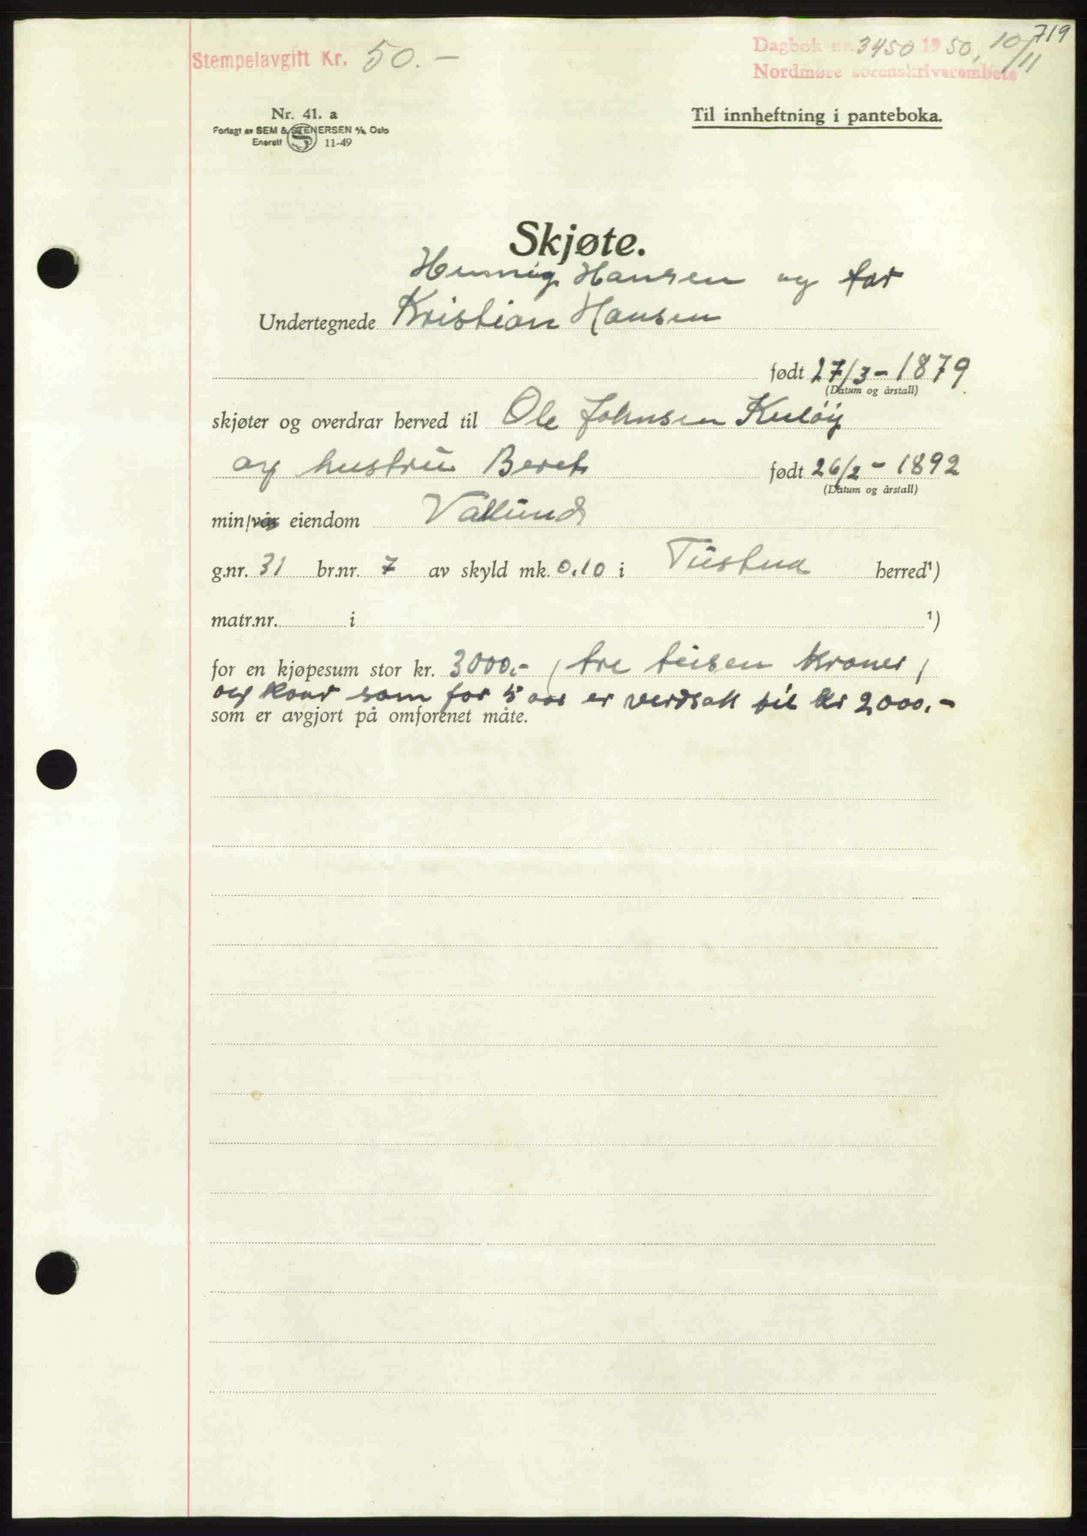 719
Stempelavgitt Kr. 50.-
Dagbok nr. 3450 1950, 10/11
Nordmøre sorenskriverembete
Nr. 41. a
Forlagt av SEM & STENERSEN A/S, Oslo
Enerett 11-49
Til innheftning i panteboka.
Skjøte.
Hansen og for
Undertegnede Kristian Hansen
født 27/3 - 1879
(Datum og årstall)
skjøter og overdrar herved til Ole Johnsen Kuløy
og hustru Beret født 26/2 - 1892
(Datum og årstall)
min/vår eiendom
g.nr. 31 br.nr. 7 av skyld mk. 0.10 i Tustna herred¹)
matr.nr. i ¹)
for en kjøpesum stor kr. 3000.- / tre tusen kroner /
og som for 5 aar er verdsatt til kr 2000.-
som er avgjort på omforenet måte.